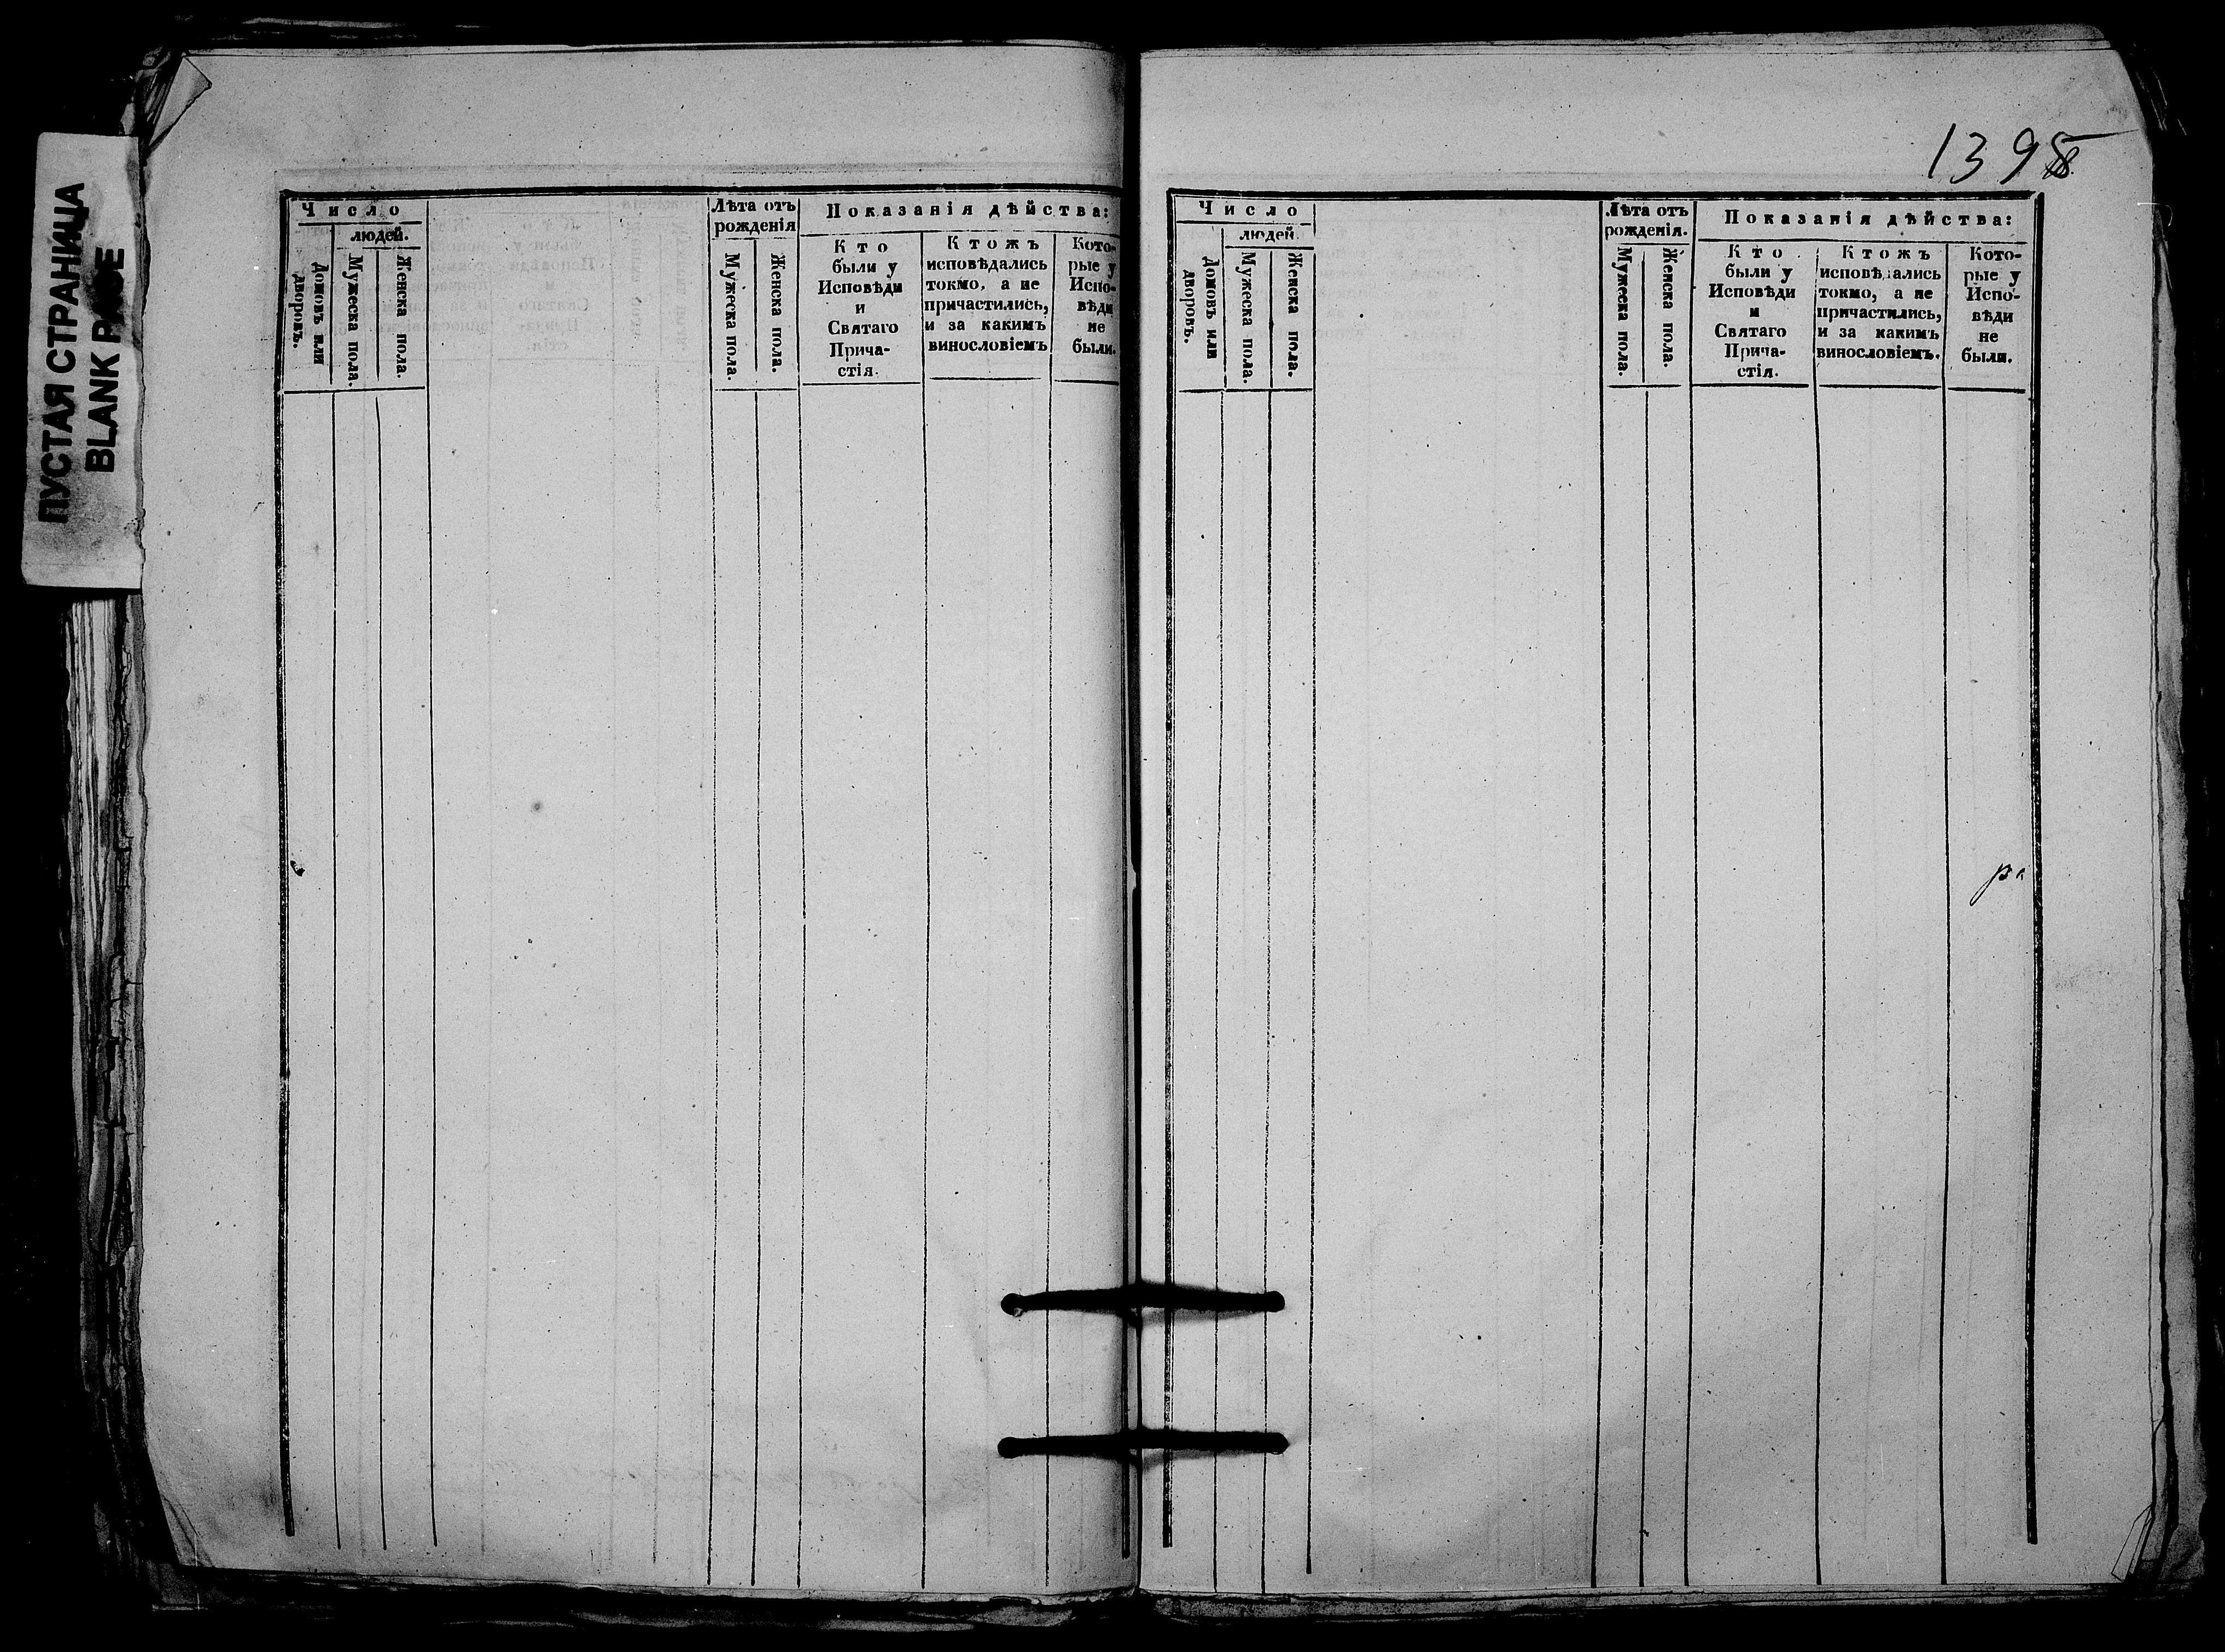 ПУСТАЯ СТРАНИЦА
BLANK PAGE
Число
людей.
Домовъ или дворовъ.
Мужеска пола.
Женска пола.
Лѣта отъ
рожденія
Мужеска пола.
Женска пола.
Показанія дѣйства:
Кто
были у
Исповѣди
и
Святаго
Прича-
стія.
Ктожъ
исповѣдались
токмо, а не
причастились,
и за какимъ
винословіемъ
Кото-
рые у
Испо-
вѣди
не
были.
139
Число
людей.
Домовъ или дворовъ.
Мужеска пола.
Женска пола.
Лѣта отъ
рожденія.
Мужеска пола.
Женска пола.
Показанія дѣйства:
Кто
были у
Исповѣди
и
Святаго
Прича-
стія.
Ктожъ
исповѣдались
токмо, а не
причастились,
и за какимъ
винословіемъ.
Кото-
рые у
Испо-
вѣди
не
были.